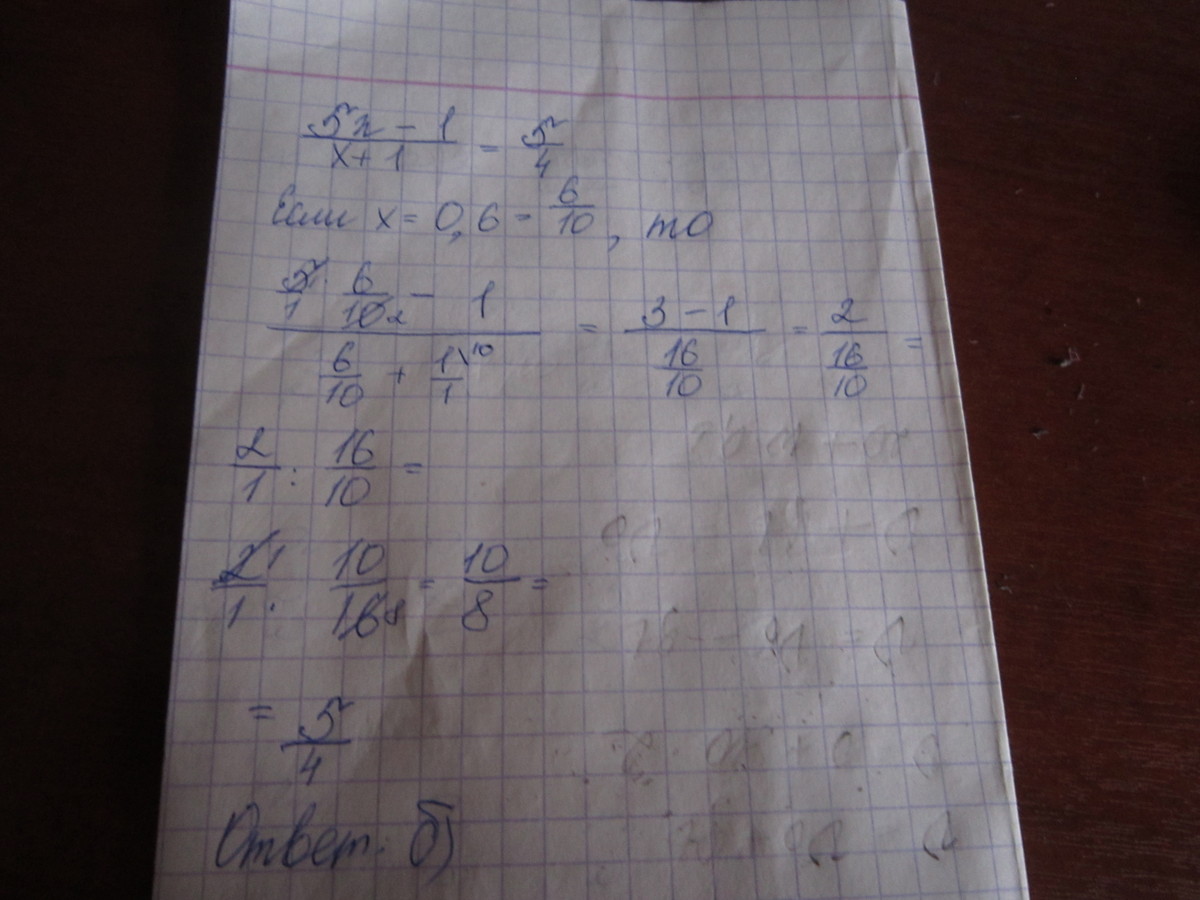 (5x - 1)/(x + 1) = 5/4
Если x = 0,6 = 6/10, то
(5/1 · 6/10 2 - 1)/(6/10 + 1/1 \10) = (3 - 1)/(16/10) = 2/(16/10) =
2/1 : 16/10 =
2 1/1 · 10/16 8 = 10/8 =
= 5/4
Ответ: б)